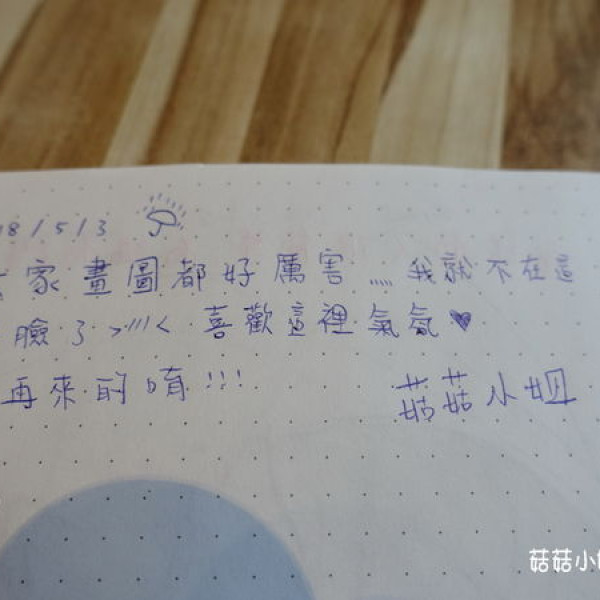 18/5/3
家畫圖都好厲害......我就不在這
臉了>///< 喜歡這裡氣氛♥
再來的唷!!!
菇菇小姐
菇菇小